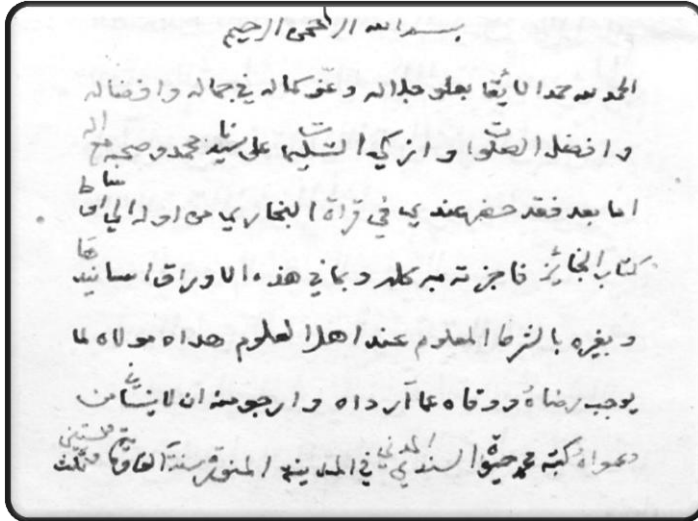 بسم الله الرحمن الرحيم
الحمد لله حمدا لائقا بعلو جلاله وعلو كماله في جماله وافضاله
وافضل الصلوات وازكي التسليمات على سيدنا محمد وصحبه مع اله
اما بعد فقد حضر عندي في قراة البخاري من اوله الي اواسط
كتاب الجنائز فاجزته به كله وبما في هذه الاوراق اسانيدها
وبغيره بالشرط المعلوم عند اهل العلوم هداه مولاه لما
يوجب رضاه ووقاه عما أرداه وارجو منه ان لا ينساني من
دعواه كتبه محمد حيوة السندي المدني في المدينة المنورة سنة الف وماية وستين وثلث